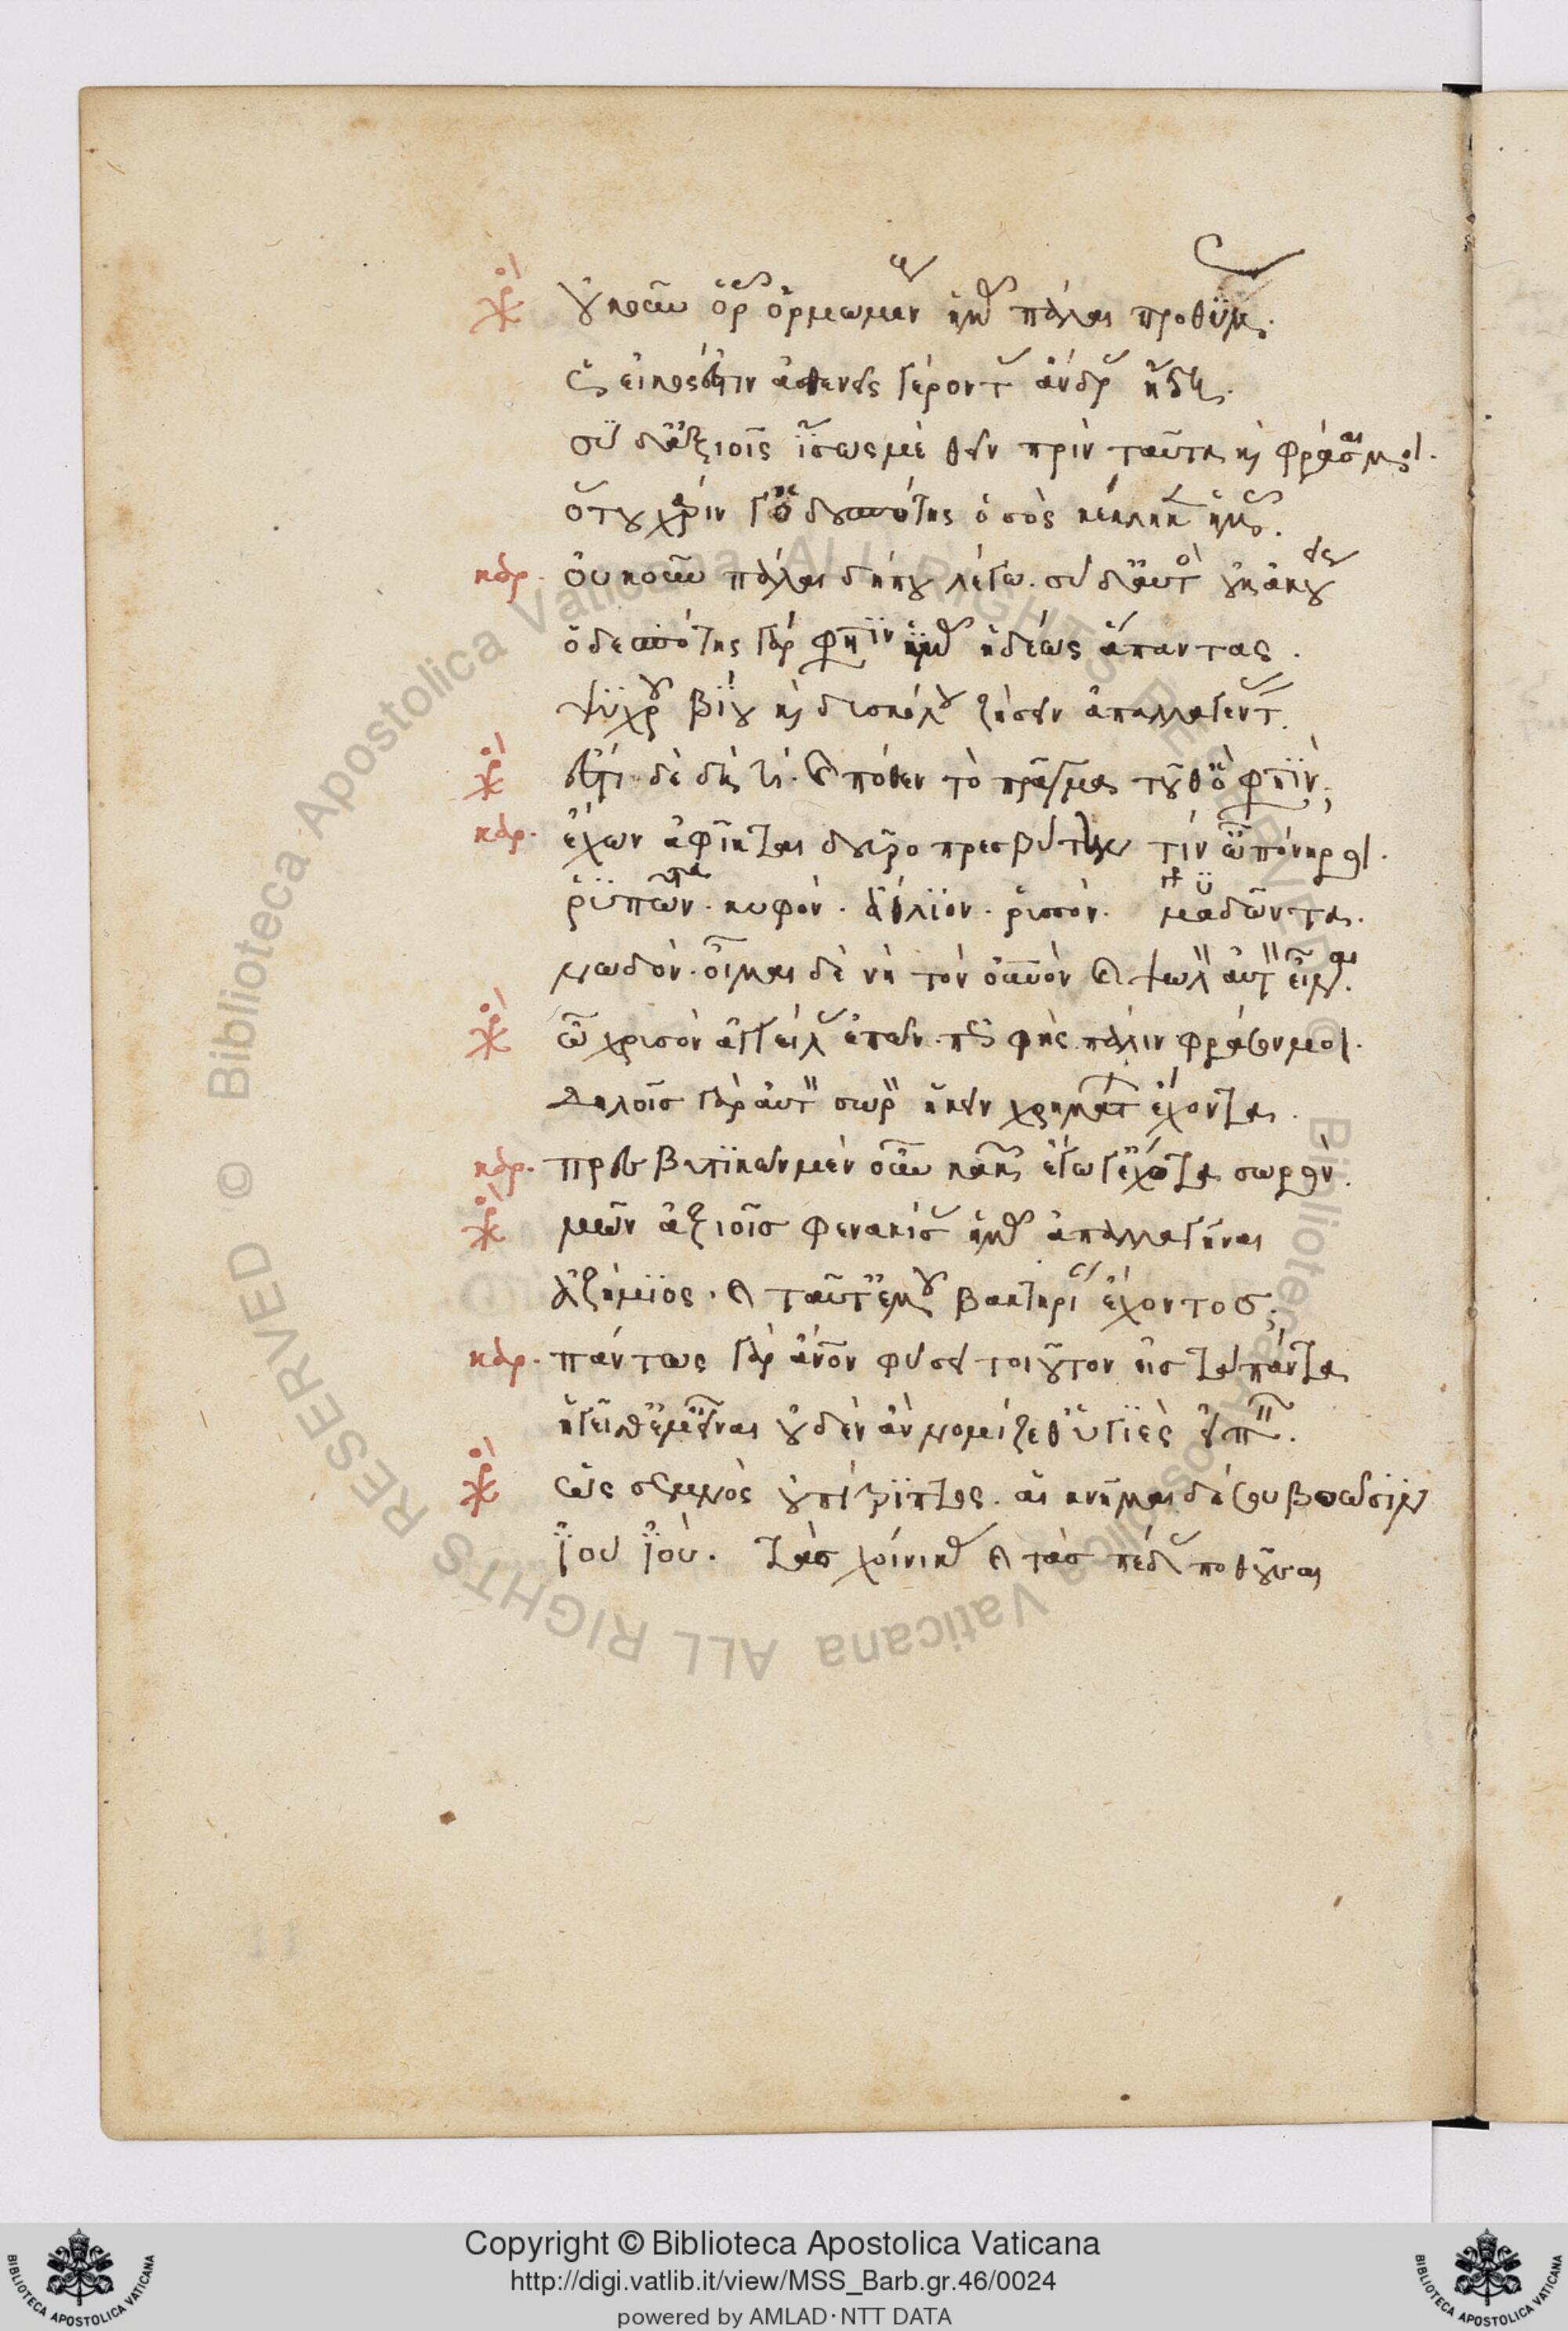 χο οὔκουν ὁρᾷς ὁρμωμένους ἡμᾶς πάλαι προθύμως.
ὡς εἰκός ἐστιν ἀσθενεῖς γέροντας ἄνδρας ἤδη.
σὺ δ' ἀξιοῖς ἴσως με θεῖν πρὶν ταῦτα καὶ φράσαι μοι.
ὅτου χάριν γ' ὁ δεσπότης ὁ σὸς κέκληκεν ἡμᾶς.
καρ. οὔκουν πάλαι δήπου λέγω. σὺ δ' αὐτὸς οὐκ ἀκούεις
ὁ δεσπότης γάρ φησιν ἡμᾶς ἡδέως ἅπαντας.
ψυχροῦ βίου καὶ δυσκόλου ζήσειν ἀπαλλαγέντας.
χο ἔστι δὲ δὴ τί. καὶ πόθεν τὸ πρᾶγμα τοῦθ' ὅ φησιν;
καρ. ἔχων ἀφῖκται δεῦρο πρεσβύτην τιν' ὦ πόνηροι.
ῥυπῶντα. κυφόν. ἄθλιον. ῥυσσόν. μαδῶντα.
νωδόν. οἶμαι δὲ νὴ τὸν οὐρανὸν καὶ ψωλὸν αὐτὸν εἶναι.
χο ὦ χρυσὸν ἀγγείλας ἐπῶν. πῶς φής πάλιν φράσον μοι.
δηλοῖς γὰρ αὐτὸν σωρὸν ἥκειν χρημάτων ἔχοντα.
καρ. πρεσβυτικῶν μὲν οὖν κακῶν ἔγωγ' ἔχοντα σωρόν.
χο μῶν ἀξιοῖς φενακίσας ἡμᾶς ἀπαλλαγῆναι
ἀζήμιος. καὶ ταῦτ' ἐμοῦ βακτηρίαν ἔχοντος;
καρ. πάντως γὰρ ἄνον φύσει τοιοῦτον εἰς τὰ πάντα
ἡγεῖσθέ μ' εἶναι οὐδὲν ἂν νομίζεθ' ὑγιὲς εἰπεῖν.
χο ὡς σεμνὸς οὑπίτριπτος. αἱ κνῆμαι δέ σου βοῶσιν
ἰοὺ ἰού. τὰς χοίνικας καὶ τὰς πέδας ποθοῦσαι
Copyright © Biblioteca Apostolica Vaticana
http://digi.vatlib.it/view/MSS_Barb.gr.46/0024
powered by AMLAD·NTT DATA